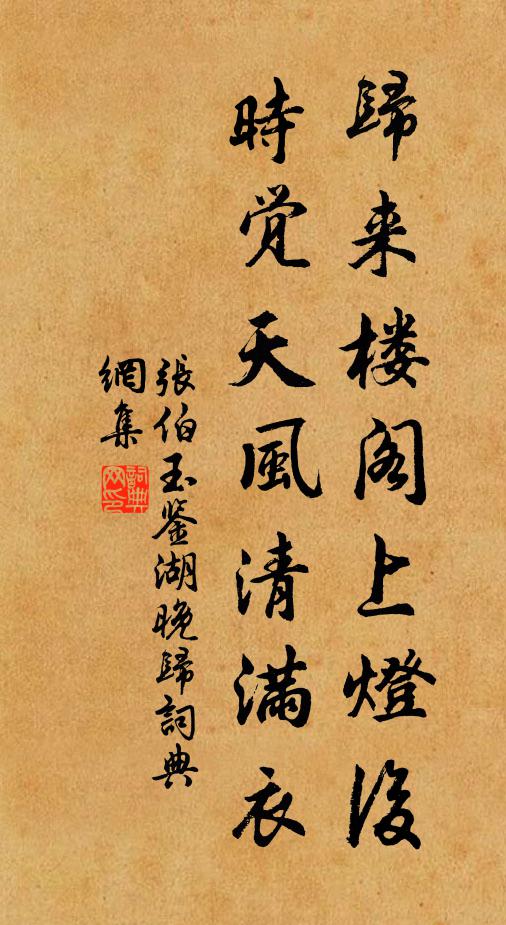 歸来楼阁上燈後
時覚天風清满衣
張伯玉鉴湖晚歸詞典
網集
詞典網印